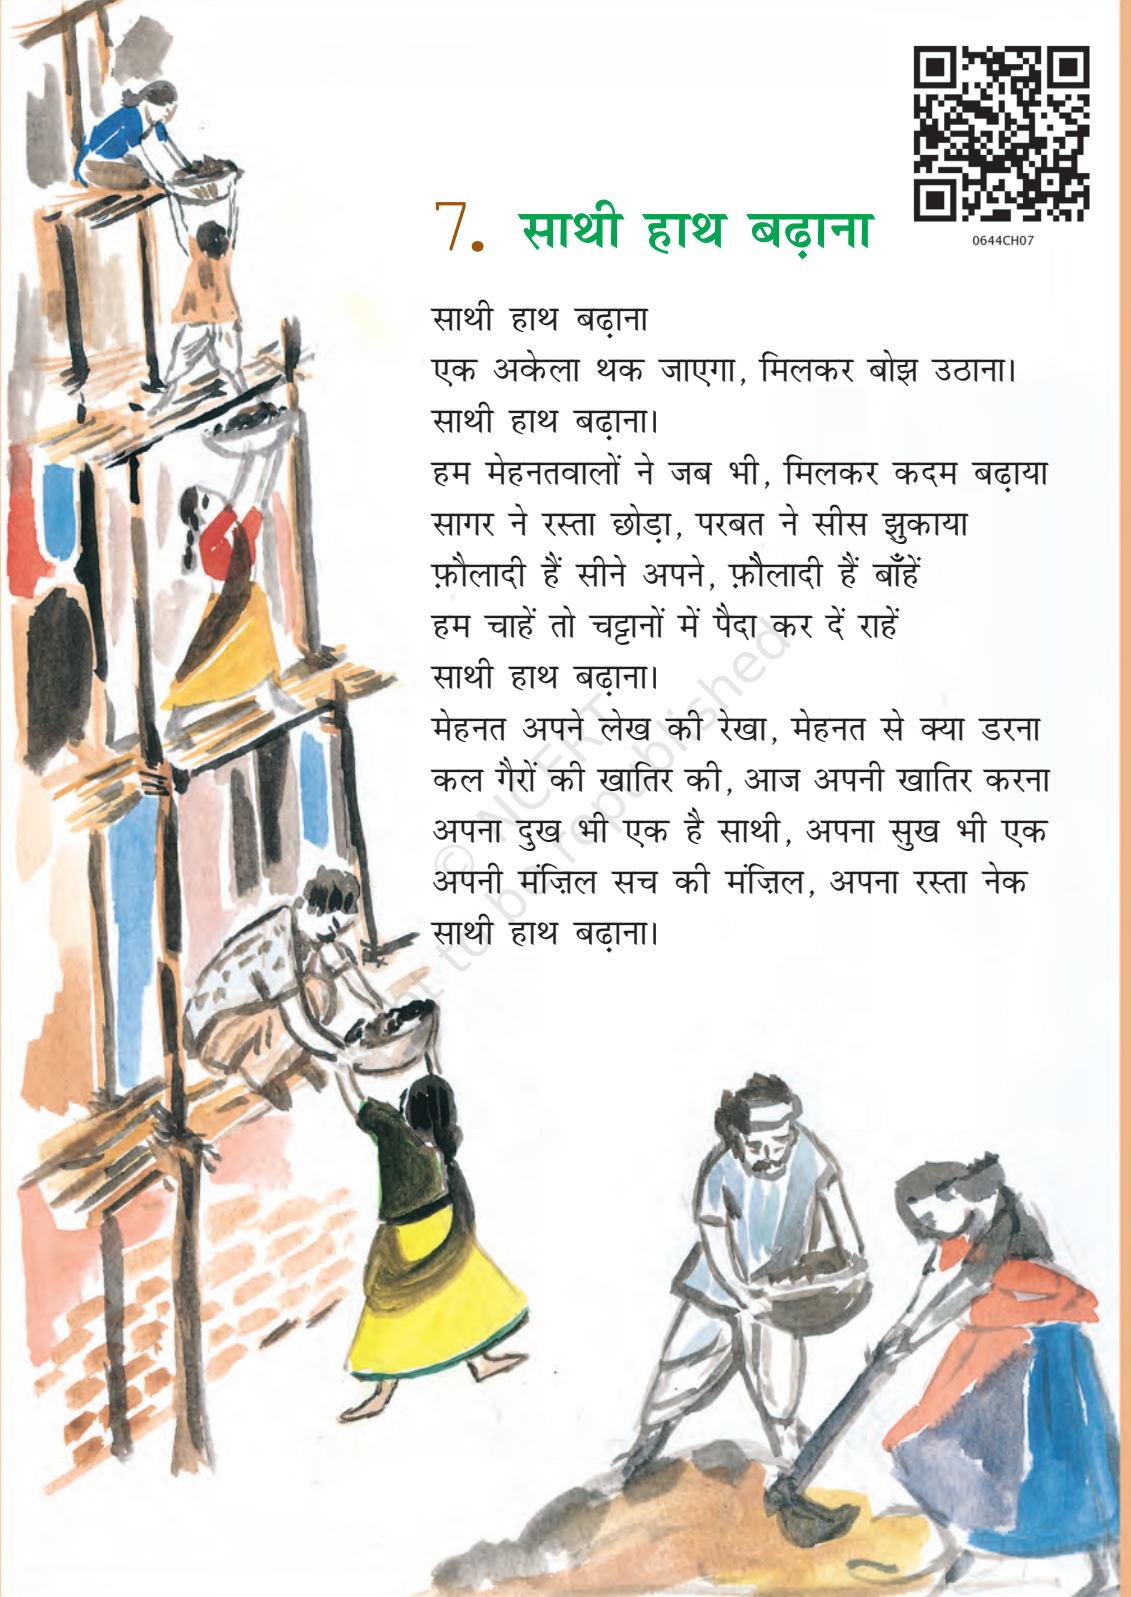 0644CH07
7. साथी हाथ बढ़ाना
साथी हाथ बढ़ाना
एक अकेला थक जाएगा, मिलकर बोझ उठाना।
साथी हाथ बढ़ाना।
हम मेहनतवालों ने जब भी, मिलकर कदम बढ़ाया
सागर ने रस्ता छोड़ा, परबत ने सीस झुकाया
फ़ौलादी हैं सीने अपने, फ़ौलादी हैं बाँहें
हम चाहें तो चट्टानों में पैदा कर दें राहें
साथी हाथ बढ़ाना।
मेहनत अपने लेख की रेखा, मेहनत से क्या डरना
कल गैरों की खातिर की, आज अपनी खातिर करना
अपना दुख भी एक है साथी, अपना सुख भी एक
अपनी मंज़िल सच की मंज़िल, अपना रस्ता नेक
साथी हाथ बढ़ाना।
© NCERT
to be republished